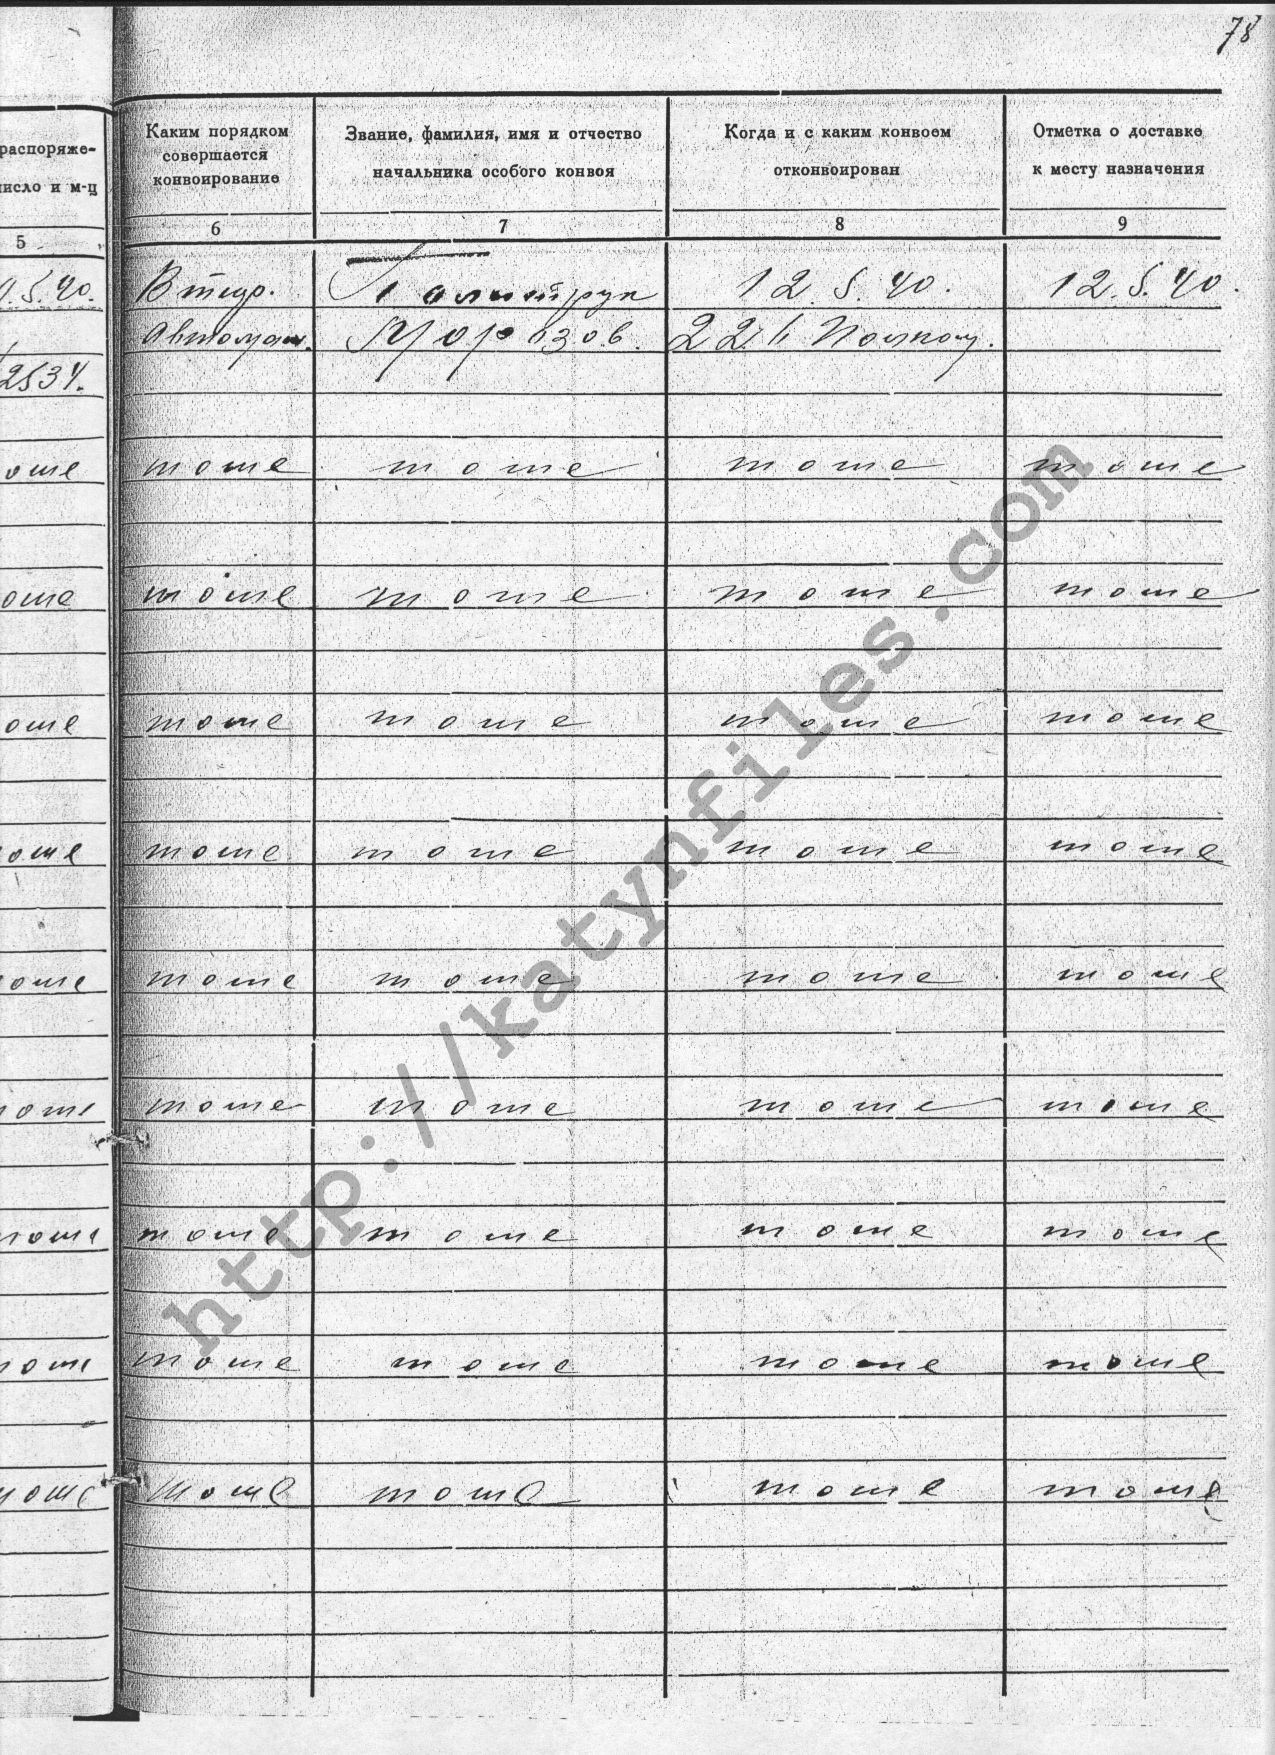 78
распоряже-
число и м-ц
5
Каким порядком
совершается
конвоирование
6
Звание, фамилия, имя и отчество
начальника особого конвоя
7
Когда и с каким конвоем
отконвоирован
8
Отметка о доставке
к месту назначения
9
.5.40. В тюр. Политрук 12.5.40. 12.5.40.
Автомаш.
2534.
тоже тоже тоже тоже тоже
тоже тоже тоже тоже тоже
тоже тоже тоже тоже тоже
тоже тоже тоже тоже тоже
тоже тоже тоже тоже тоже
тоже тоже тоже тоже тоже
тоже тоже тоже тоже тоже
тоже тоже тоже тоже тоже
тоже тоже тоже тоже тоже
http://katynfiles.com